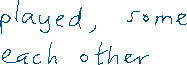 played, some
each other